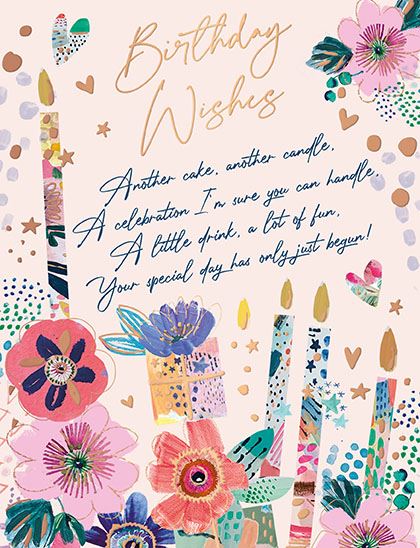 Birthday
Wishes
Another cake, another candle,
A celebration I'm sure you can handle.
A little drink, a lot of fun,
Your special day has only just begun!